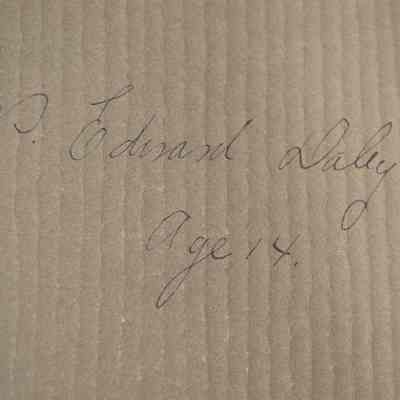 P. Edward Daley
Age 14.